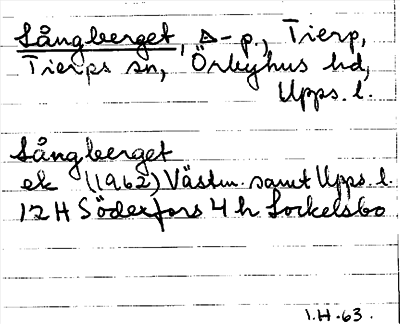 Långberget, Δ-p., Tierp,
Tierps sn, Örbyhus hd,
Upps. l.
Långberget
ek (1962) Västm. samt Upps. l.
12 H Söderfors 4 h Sockelsbo
I.H.63.